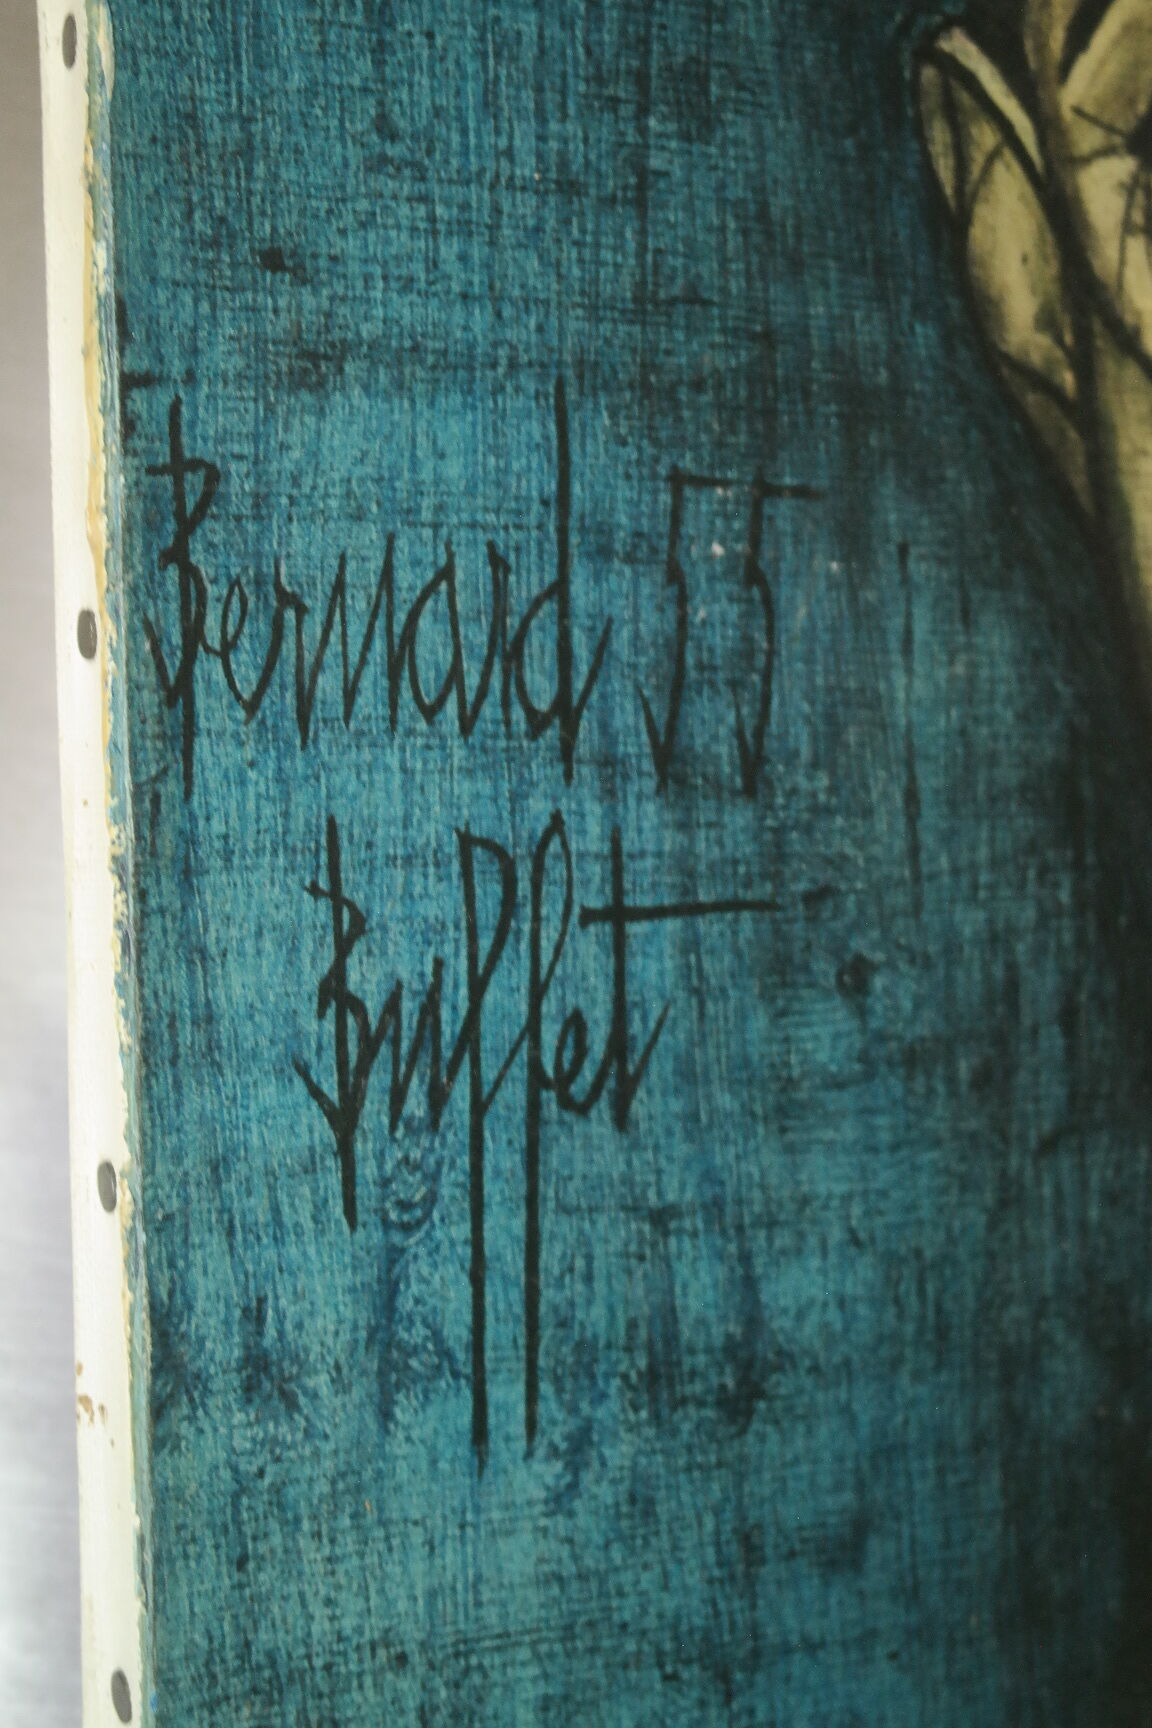 Bernard 55
Buffet